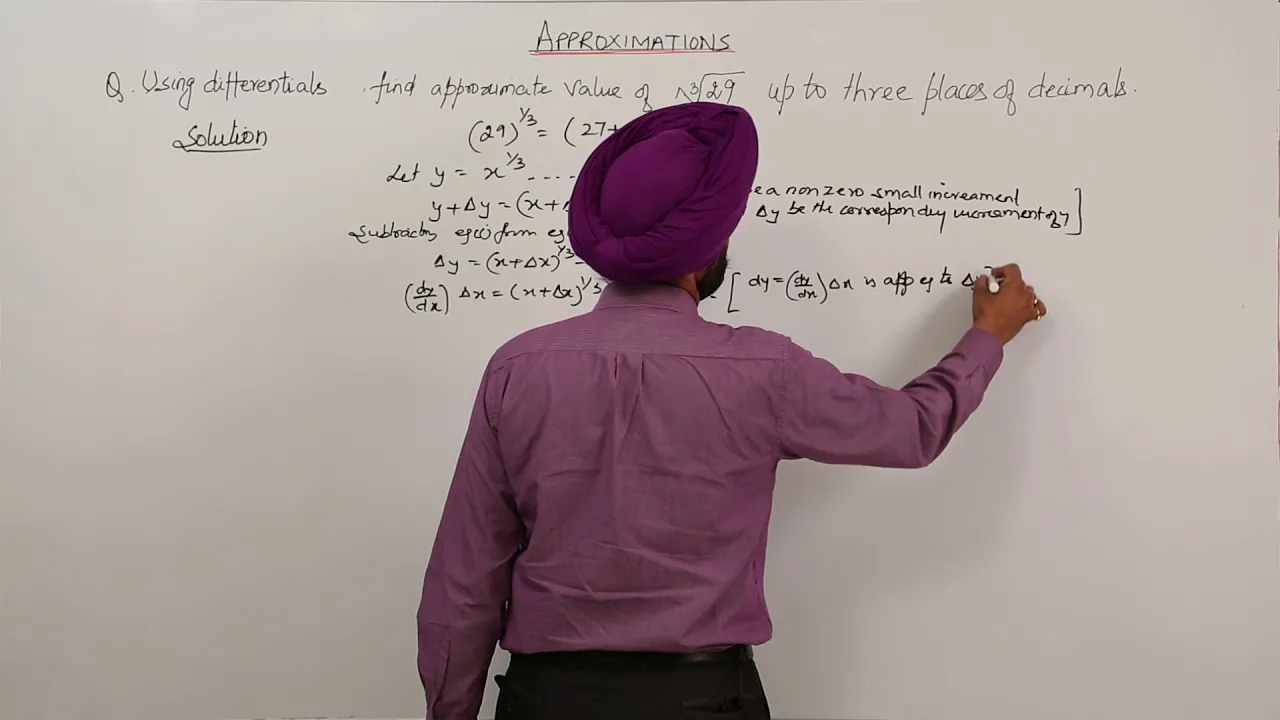 APPROXIMATIONS
Q. Using differentials find approximate value of ∛29 up to three places of decimals.
Solution
(29)^1/3 = (27+
Let y = x^1/3 ....
y+Δy = (x+Δ e a non zero small increament
Δy be the correspondig increment of y]
Subtracting eq(i) form eq
Δy = (x+Δx)^1/3 -
(dy/dx) Δx = (x+Δx)^1/3 [dy = (dy/dx) Δx is app eq to Δy]